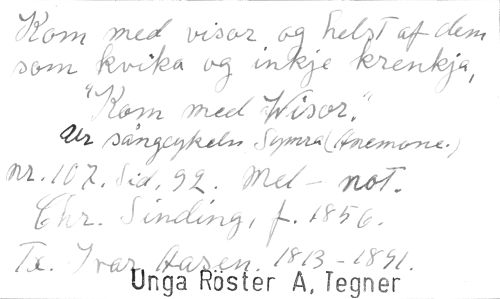 Kom med visor og helst af dem
som kvika og inkje krenkja,
"Kom med Wisor."
Ur sångcykeln Symra (Anemone.)
nr. 107. Sid. 92. Mel – not.
Chr. Sinding, f. 1856.
Tx. Ivar Aasen. 1813 – 1891.
Unga Röster A, Tegner